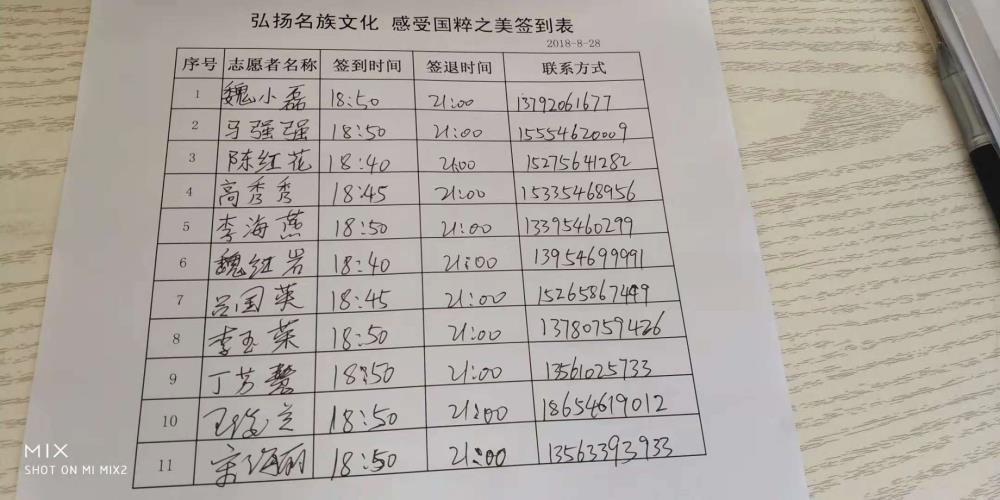 弘扬名族文化 感受国粹之美签到表
2018-8-28
序号 志愿者名称 签到时间 签退时间 联系方式
1 魏小磊 18:50 21:00 13792061677
2 马强强 18:50 21:00 15554620009
3 陈红花 18:40 21:00 15275641282
4 高秀秀 18:45 21:00 15335468956
5 李海燕 18:50 21:00 13395460299
6 魏红岩 18:40 21:00 13954699991
7 吕国英 18:45 21:00 15265867449
8 李玉荣 18:50 21:00 13780759426
9 丁芳馨 18:50 21:00 13561025733
10 王 兰 18:50 21:00 18654619012
11 宋海丽 18:50 21:00 13563393933
MIX
SHOT ON MI MIX2